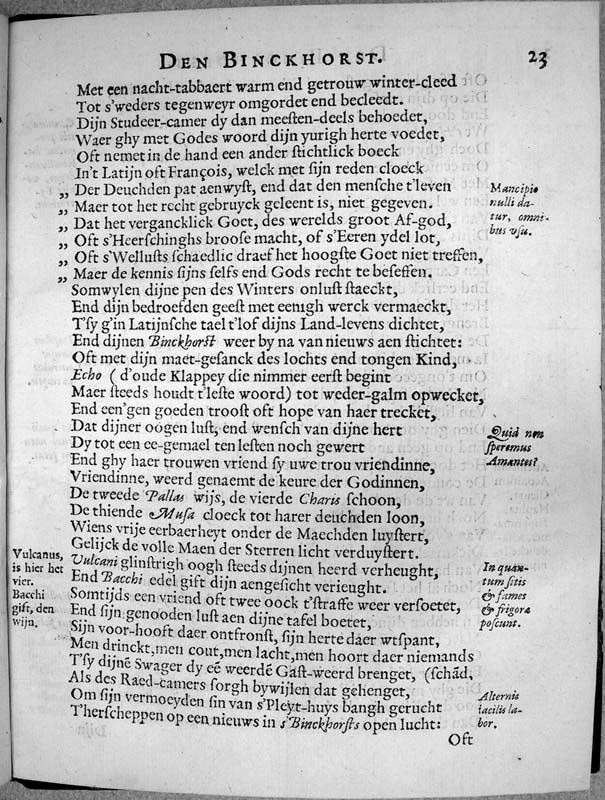 DEN BINCKHORST. 23
Met een nacht-tabbaert warm end getrouw winter-cleed
Tot s'weders tegenweyr omgordet end becleedt.
Dijn Studeer-camer dy dan meesten-deels behoedet,
Waer ghy met Godes woord dijn yurigh herte voedet,
Oft nemet in de hand een ander stichtlick boeck
In't Latijn oft François, welck met sijn reden cloeck
„ Der Deuchden pat aenwyst, end dat den mensche t'leven
„ Maer tot het recht gebruyck geleent is, niet gegeven.
„ Dat het vergancklick Goet, des werelds groot Af-god,
„ Oft s'Heerschinghs broose macht, of s'Eeren ydel lot,
„ Oft s'Wellusts schaedlic draef het hoogste Goet niet treffen,
„ Maer de kennis sijns selfs end Gods recht te beseffen.
Mancipio
nulli da-
tur, omni-
bus usu.
Somwylen dijne pen des Winters onlust staeckt,
End dijn bedroefden geest met eenigh werck vermaeckt,
T'sy g'in Latijnsche tael t'lof dijns Land-levens dichtet,
End dijnen Binckhorst weer by na van nieuws aen stichtet:
Oft met dijn maet-gesanck des lochts end tongen Kind,
Echo ( d'oude Klappey die nimmer eerst begint
Maer steeds houdt t'leste woord) tot weder-galm opwecket,
End een'gen goeden troost oft hope van haer trecket,
Dat dijner oogen lust, end wensch van dijne hert
Dy tot een ee-gemael ten lesten noch gewert
End ghy haer trouwen vriend sy uwe trou vriendinne,
Quid non
speremus
Amantes?
Vriendinne, weerd genaemt de keure der Godinnen,
De tweede Pallas wijs, de vierde Charis schoon,
De thiende Musa cloeck tot harer deuchden loon,
Wiens vrije eerbaerheyt onder de Maechden luystert,
Gelijck de volle Maen der Sterren licht verduystert.
Vulcani glinstrigh oogh steeds dijnen heerd verheught,
End Bacchi edel gift dijn aengesicht verieught.
Vulcanus,
is hier het
vier.
Bacchi
gift, den
wijn.
Somtijds een vriend oft twee oock t'straffe weer versoetet,
End sijn genooden lust aen dijne tafel boetet,
Sijn voor-hooft daer ontfronst, sijn herte daer wtspant,
In quan-
tum sitis
& fames
& frigora
poscunt.
Men drinckt, men cout, men lacht, men hoort daer niemands
T'sy dijnē Swager dy eē weerdē Gast-weerd brenget, (schād,
Als des Raed-camers sorgh bywijlen dat gehenget,
Om sijn vermoeyden sin van s'Pleyt-huys bangh gerucht
T'herscheppen op een nieuws in s'Binckhorsts open lucht:
Alternis
facilis la-
bor.
Oft